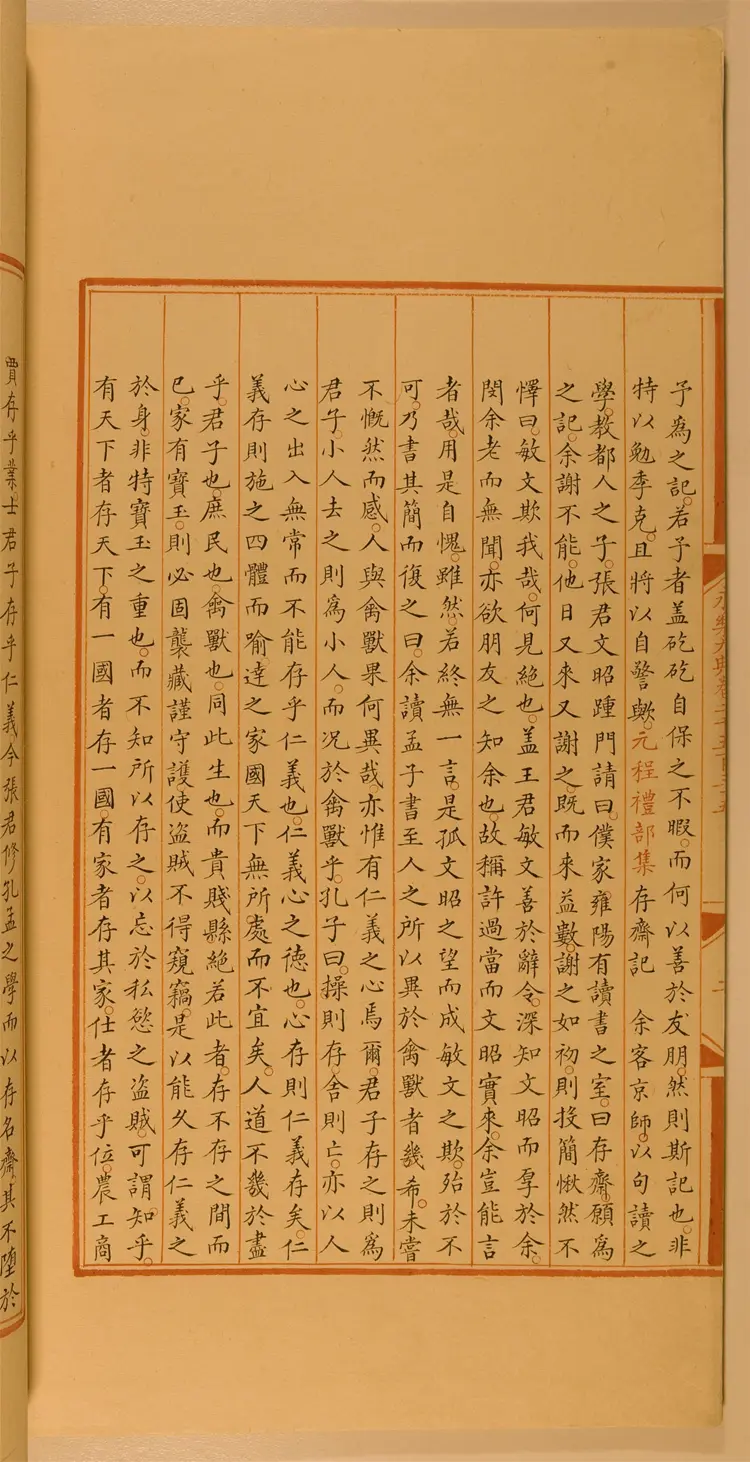 予為之記。若子者盖矻矻自保之不暇。而何以善於友朋。然則斯記也。非
特以勉季克。且將以自警歟。元程禮部集存齋記　余客京師。以句讀之
學。教都人之子。張君文昭踵門請曰。僕家雍陽有讀書之室。曰存齋。願為
之記。余謝不能。他日又來又謝之。既而來益數。謝之如初。則投簡愀然不
懌曰。敏文欺我哉。何見絶也。盖王君敏文善於辭令。深知文昭而厚於余。
閔余老而無聞。亦欲朋友之知余也。故稱許過當而文昭實來。余豈能言
者哉。用是自愧。雖然。若終無一言。是孤文昭之望而成敏文之欺。殆於不
可。乃書其簡而復之曰。余讀孟子書至人之所以異於禽獸者幾希。未嘗
不慨然而感。人與禽獸果何異哉。亦惟有仁義之心焉爾。君子存之則為
君子。小人去之則為小人。而况於禽獸乎。孔子曰。操則存舍則亡。亦以人
心之出入無常而不能存乎仁義也。仁義心之德也。心存則仁義存矣。仁
義存則施之四體而喻。達之家國天下無所處而不宜矣。人道不幾於盡
乎。君子也。庶民也。禽獸也。同此生也。而貴賤縣絶若此者。存不存之間而
已。家有寶玉。則必固襲藏謹守護。使盗賊不得窺竊。是以能久存仁義之
於身。非特寶玉之重也。而不知所以存之。以忘於私慾之盗賊。可謂知乎。
有天下者存天下。有一國者存一國。有家者存其家。仕者存乎位。農工商
賈存乎業。士君子存乎仁義今張君修孔孟之學而以存名齋。其不墮於